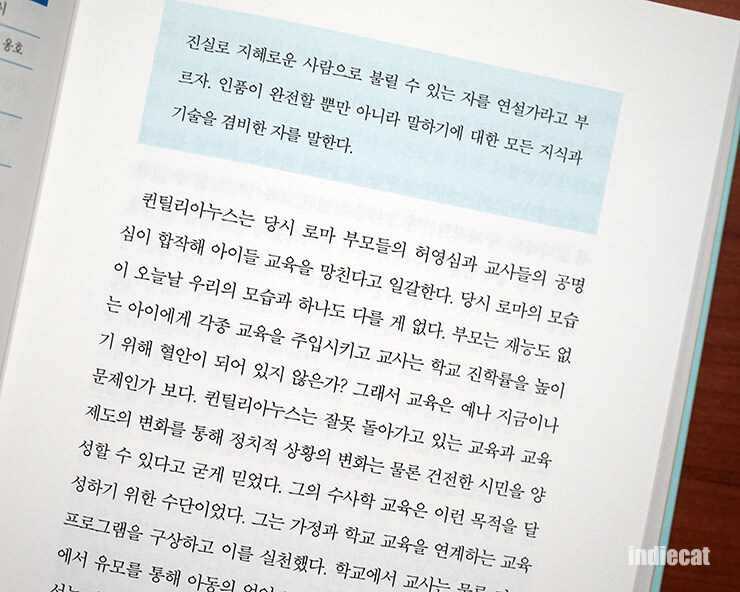 시
용호
진실로 지혜로운 사람으로 불릴 수 있는 자를 연설가라고 부
르자. 인품이 완전할 뿐만 아니라 말하기에 대한 모든 지식과
기술을 겸비한 자를 말한다.
퀸틸리아누스는 당시 로마 부모들의 허영심과 교사들의 공명
심이 합작해 아이들 교육을 망친다고 일갈한다. 당시 로마의 모습
이 오늘날 우리의 모습과 하나도 다를 게 없다. 부모는 재능도 없
는 아이에게 각종 교육을 주입시키고 교사는 학교 진학률을 높이
기 위해 혈안이 되어 있지 않은가? 그래서 교육은 예나 지금이나
문제인가 보다. 퀸틸리아누스는 잘못 돌아가고 있는 교육과 교육
제도의 변화를 통해 정치적 상황의 변화는 물론 건전한 시민을 양
성할 수 있다고 굳게 믿었다. 그의 수사학 교육은 이런 목적을 달
성하기 위한 수단이었다. 그는 가정과 학교 교육을 연계하는 교육
프로그램을 구상하고 이를 실천했다. 학교에서 교사는 물론
에서 유모를 통해 아동의 언어
indiecat